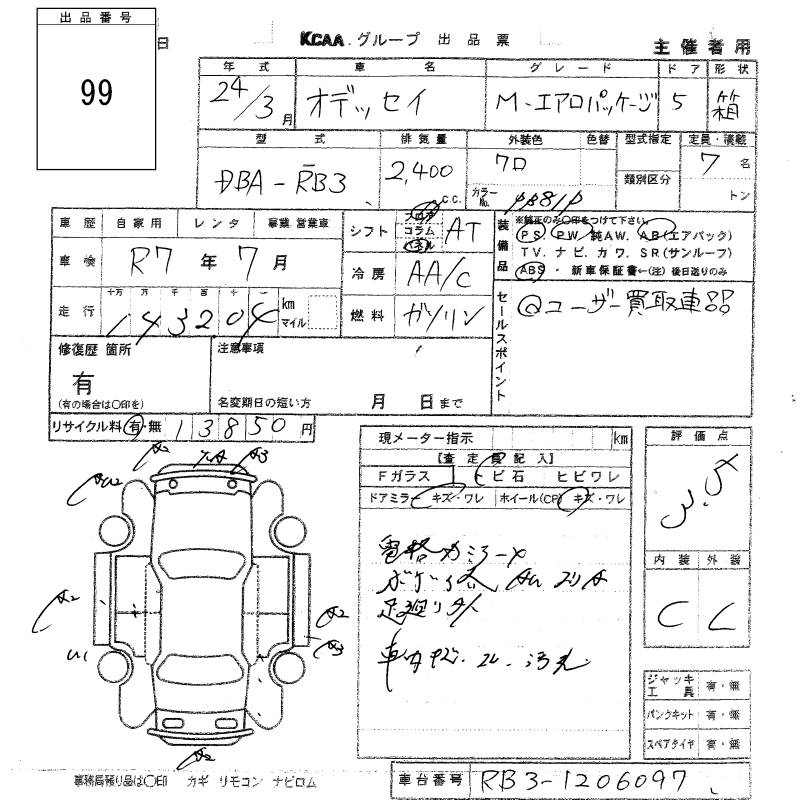 出品番号
99
日
KCAA グループ 出品票
主催者用
年式 車名 グレード ドア 形状
24/3月 オデッセイ M・エアロパッケージ 5 箱
型式 排気量 外装色 色替 型式指定 定員・積載
DBA-RB3 2,400 c.c. クロ 7名
カラーNo. 類別区分 トン
車歴 自家用 レンタ 事業・営業車
シフト フロア コラム AT
装備品 ※純正のみ〇印をつけて下さい。
PS. PW. 純AW. AB(エアバック)
TV. ナビ. カワ. SR(サンルーフ)
ABS ・ 新車保証書←(注)後日送りのみ
車検 R7年7月
冷房 AA/C
走行 十万 万 千 百 十 一
143204 km マイル
燃料 ガソリン
セールスポイント
@ユーザー買取車
修復歴 箇所
有
(有の場合は〇印を)
注意事項
名変期日の短い方 月 日まで
リサイクル料 有・無 13850円
現メーター指示 km
【査定員記入】
Fガラス ヒビ石 ヒビワレ
ドアミラー キズ・ワレ ホイール(CP) キズ・ワレ
評価点
3.5
内装 外装
C C
A2
A3
A2
A2
A3
U1
A2
足廻りサビ
ジャッキ工具 有・無
パンクキット 有・無
スペアタイヤ 有・無
事務局預り品は〇印 カギ リモコン ナビロム
車台番号 RB3-1206097